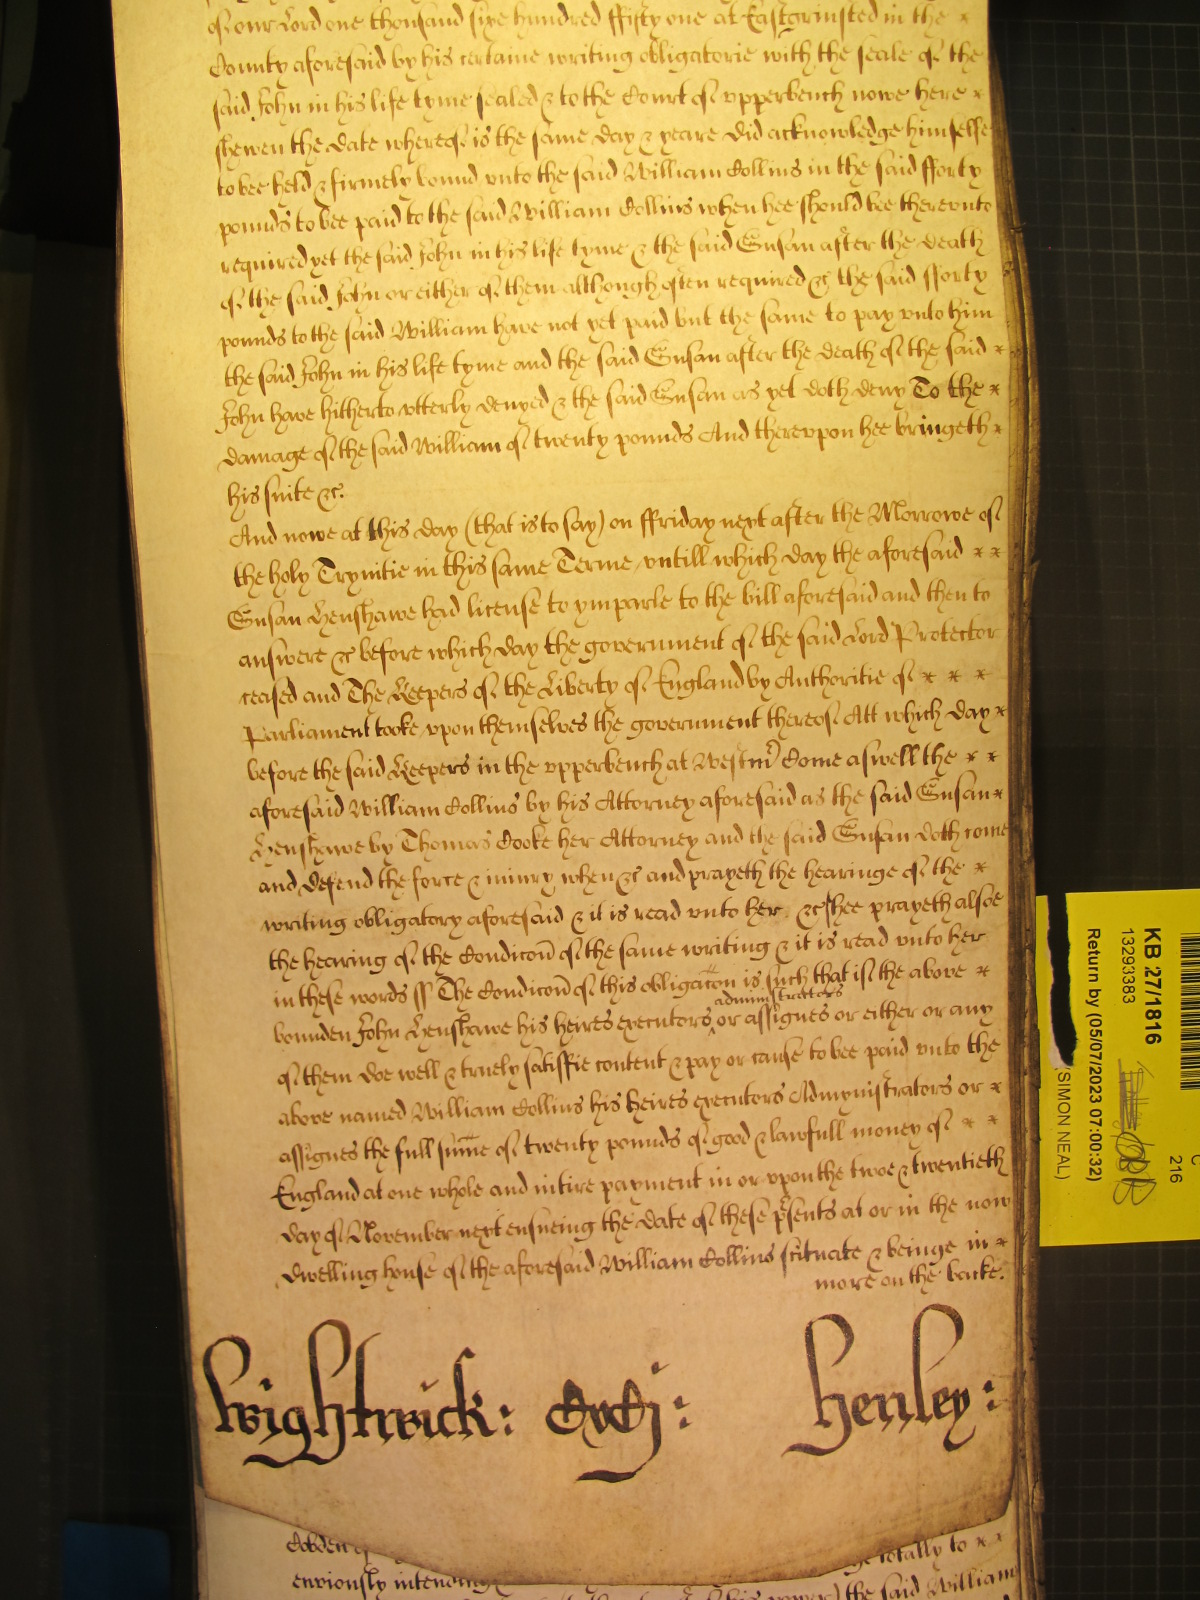 of our Lord one thousand sixe hundred ffifty one at Eastgrinsted in the
County aforesaid by his certaine writing obligatorie with the seale of the
said John in his life tyme sealed & to the Court of vpperbench nowe here
shewen the date whereof is the same day & yeare did acknowledge himselfe
to bee held & firmely bound vnto the said William Collins in the said fforty
pounds to bee paid to the said William Collins when hee should bee therevnto
required yet the said John in his life tyme & the said Susan after the death
of the said John or either of them although often required &c the said fforty
pounds to the said William have not yet paid but the same to pay vnto him
the said John in his life tyme and the said Susan after the death of the said
John have hitherto vtterly denyed & the said Susan as yet doth deny To the
damage of the said William of twenty pounds And therevpon hee bringeth
his suite &c.
And nowe at this day (that is to say) on ffriday next after the Morrowe of
the holy Trynitie in this same Terme vntill which day the aforesaid
Susan Henshawe had license to ymparle to the bill aforesaid and then to
answere &c before which day the government of the said Lord Protector
ceased and The Keepers of the Liberty of England by Authoritie of
Parliament tooke vpon themselves the government thereof Att which day
before the said Keepers in the vpperbench at Westmr Come aswell the
aforesaid William Collins by his Attorney aforesaid as the said Susan
Henshawe by Thomas Cooke her Attorney and the said Susan doth come
and defend the force & iniury when &c and prayeth the hearinge of the
writing obligatory aforesaid & it is read vnto her &c shee prayeth alsoe
the hearing of the Condicoñ of the same writing & it is read vnto her
in these words ss The Condicoñ of this obligacon is such that if the above
bounden John Henshawe his heires executors administrators or assignes or either or any
of them doe well & truely satisfie content & pay or cause to bee paid vnto the
above named William Collins his heires executors Admynistrators or
assignes the full sume of twenty pounds of good & lawfull money of
England at one whole and intire payment in or vpon the twoe & twentieth
day of November next ensueing the date of these psents at or in the now
dwelling house of the aforesaid William Collins scituate & beinge in
more on the backe.
Wightwick: Henley:
Cobden of totally to
enviously intending power) the said William
KB 27/1816
13293383
Return by (05/07/2023 07:00:32)
(SIMON NEAL)
C
216